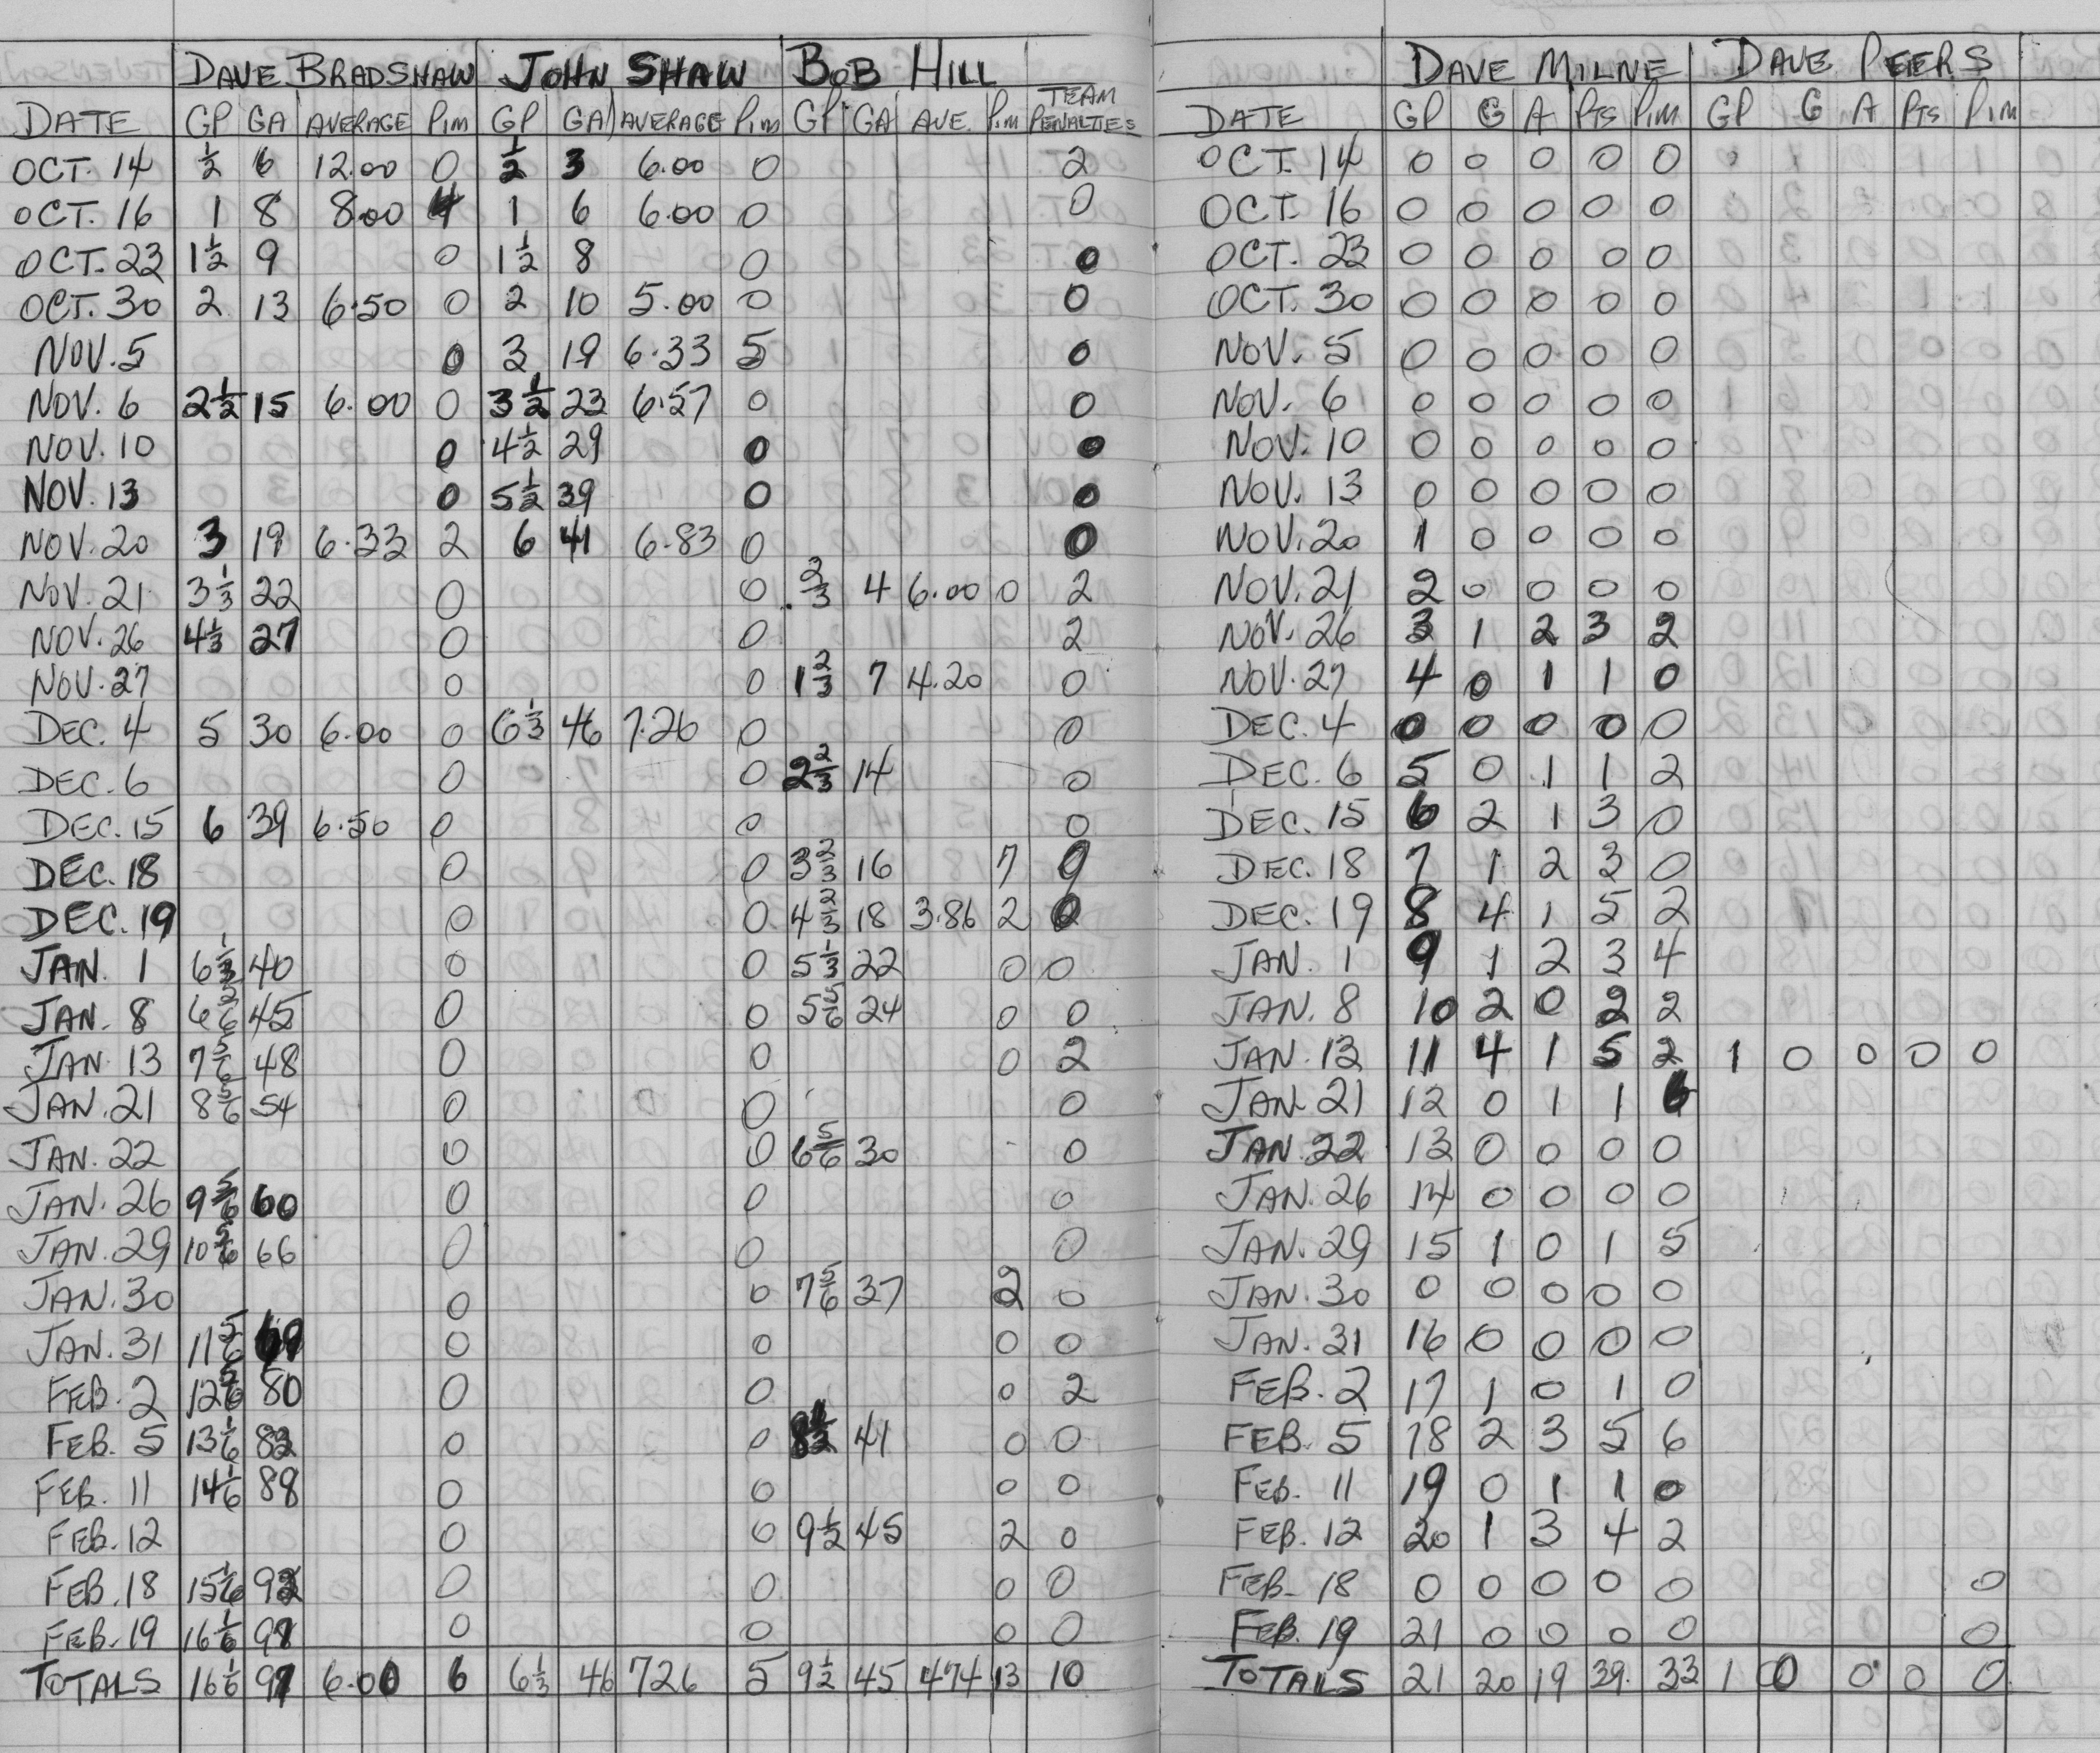 DAVE BRADSHAW JOHN SHAW BOB HILL
DATE GP GA AVERAGE PIM GP GA AVERAGE PIM GP GA AVE. PIM TEAM PENALTIES
OCT. 14 ½ 6 12.00 0 ½ 3 6.00 0 2
OCT. 16 1 8 8.00 4 1 6 6.00 0 0
OCT. 23 1½ 9 0 1½ 8 0 0
OCT. 30 2 13 6.50 0 2 10 5.00 0 0
NOV. 5 0 3 19 6.33 5 0
NOV. 6 2½ 15 6.00 0 3½ 23 6.57 0 0
NOV. 10 0 4½ 29 0 0
NOV. 13 0 5½ 39 0 0
NOV. 20 3 19 6.33 2 6 41 6.83 0 0
NOV. 21 3⅓ 22 0 0 ⅔ 4 6.00 0 2
NOV. 26 4⅓ 27 0 0 2
NOV. 27 0 0 1⅔ 7 4.20 0
DEC. 4 5 30 6.00 0 6⅓ 46 7.26 0 0
DEC. 6 0 0 2⅔ 14 0
DEC. 15 6 39 6.50 0 0 0
DEC. 18 0 0 3⅔ 16 7 0
DEC. 19 0 0 4⅔ 18 3.86 2 0
JAN. 1 6⅓ 40 0 0 5⅓ 22 0 0
JAN. 8 45 0 0 5⅚ 24 0 0
JAN. 13 7⅚ 48 0 0 0 2
JAN. 21 8⅚ 54 0 0 0
JAN. 22 0 0 6⅚ 30 0
JAN. 26 9⅚ 60 0 0 0
JAN. 29 10⅚ 66 0 0 0
JAN. 30 0 0 7⅚ 37 2 0
JAN. 31 11⅚ 69 0 0 0 0
FEB. 2 12⅚ 80 0 0 0 2
FEB. 5 13⅙ 82 0 0 8½ 41 0 0
FEB. 11 14⅙ 88 0 0 0 0
FEB. 12 0 0 9½ 45 2 0
FEB. 18 15⅙ 92 0 0 0 0
FEB. 19 16⅙ 97 0 0 0 0
TOTALS 16⅙ 97 6.00 6 6⅓ 46 726 5 9½ 45 474 13 10
DAVE MILNE DAVE PEERS
DATE GP G A PTS PIM GP G A PTS PIM
OCT. 14 0 0 0 0 0
OCT. 16 0 0 0 0 0
OCT. 23 0 0 0 0 0
OCT. 30 0 0 0 0 0
NOV. 5 0 0 0 0 0
NOV. 6 0 0 0 0 0
NOV. 10 0 0 0 0 0
NOV. 13 0 0 0 0 0
NOV. 20 1 0 0 0 0
NOV. 21 2 0 0 0 0
NOV. 26 3 1 2 3 2
NOV. 27 4 0 1 1 0
DEC. 4 0 0 0 0 0
DEC. 6 5 0 1 1 2
DEC. 15 6 2 1 3 0
DEC. 18 7 1 2 3 0
DEC. 19 8 4 1 5 2
JAN. 1 9 1 2 3 4
JAN. 8 10 2 0 2 2
JAN. 13 11 4 1 5 2 1 0 0 0 0
JAN. 21 12 0 1 1 6
JAN. 22 13 0 0 0 0
JAN. 26 14 0 0 0 0
JAN. 29 15 1 0 1 5
JAN. 30 0 0 0 0 0
JAN. 31 16 0 0 0 0
FEB. 2 17 1 0 1 0
FEB. 5 18 2 3 5 6
FEB. 11 19 0 1 1 0
FEB. 12 20 1 3 4 2
FEB. 18 0 0 0 0 0 0
FEB. 19 21 0 0 0 0 0
TOTALS 21 20 19 39. 33 1 0 0 0 0